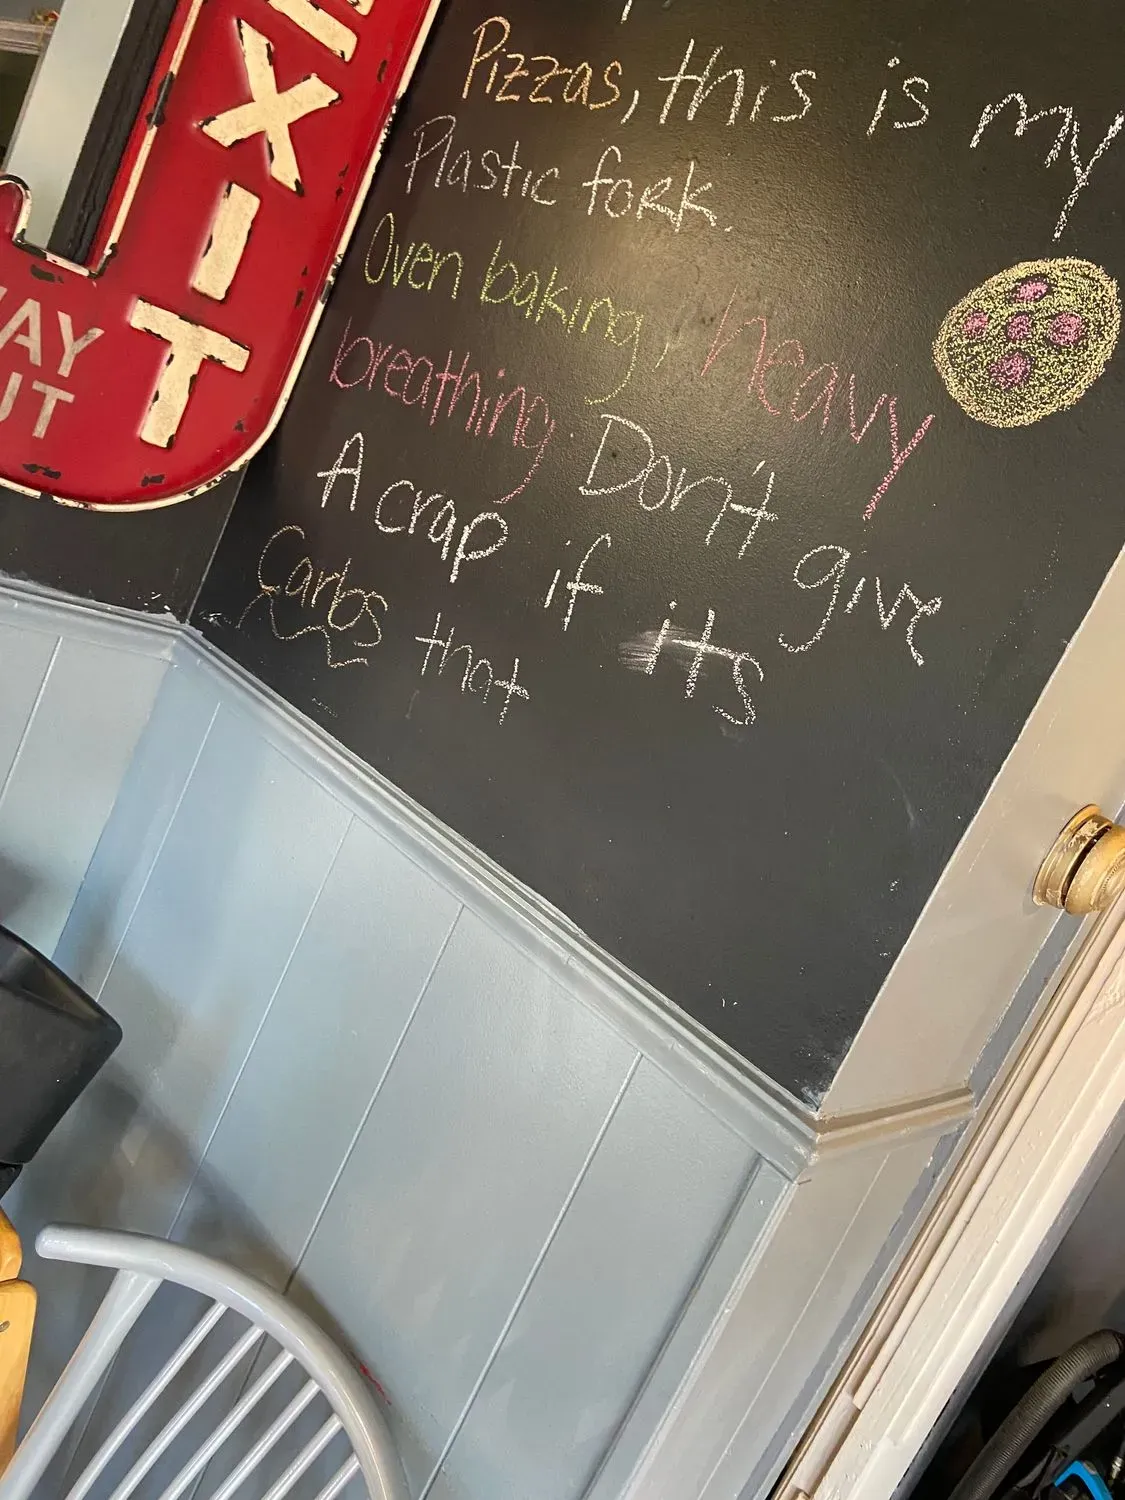 EXIT
WAY
Pizzas, this is my
Plastic fork.
Oven baking, heavy
breathing. Don't give
A crap if its
Carbs that